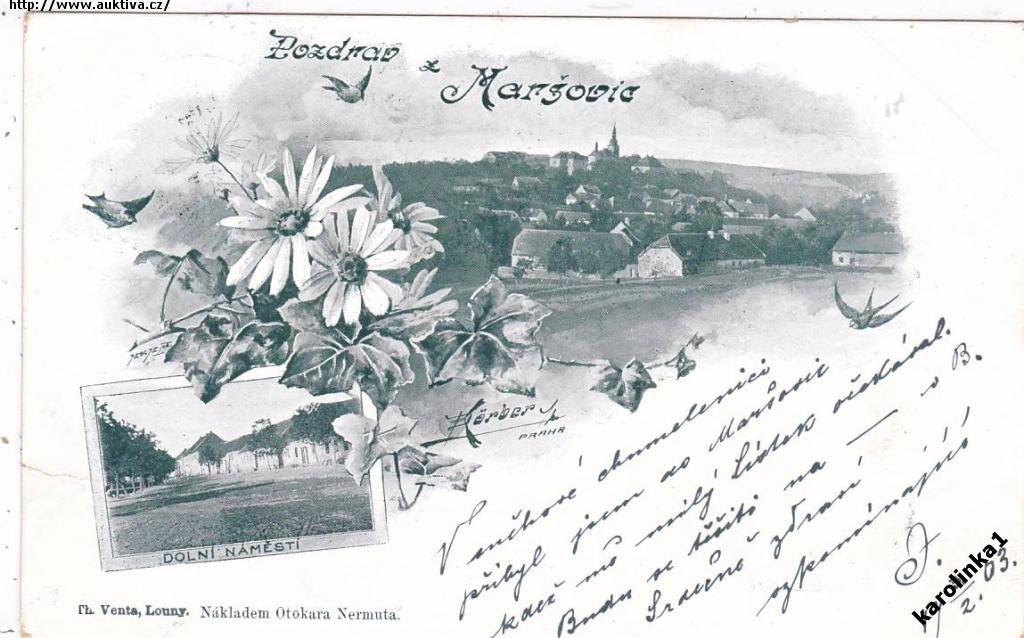 http://www.auktiva.cz/
Pozdrav z Maršovic
Körber
PRAHA
DOLNÍ NÁMĚSTÍ
V sněhové chumelenici
přibyl jsem do Maršovic
kdež mě milý Lidek očekával.
Budu se těšiti na — v B.
Srdečně zdraví
vzpomínající
J.
2. 03.
Th. Venta, Louny. Nákladem Otokara Nermuta.
karolinka1